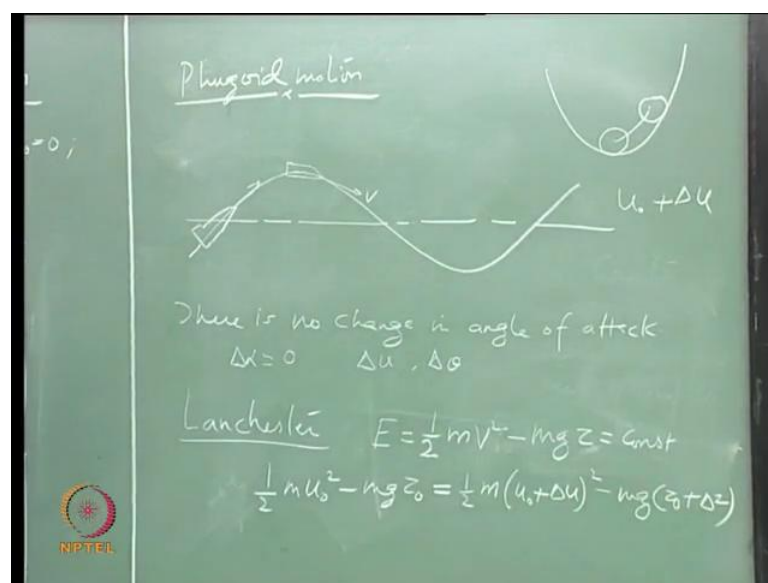 Phugoid motion
=0;
V
u₀ + Δu
There is no change in angle of attack
Δα = 0 Δu, Δθ
Lanchester E = ½ mV² - mgz = Const
½ mu₀² - mgz₀ = ½ m(u₀+Δu)² - mg(z₀+Δz)
NPTEL